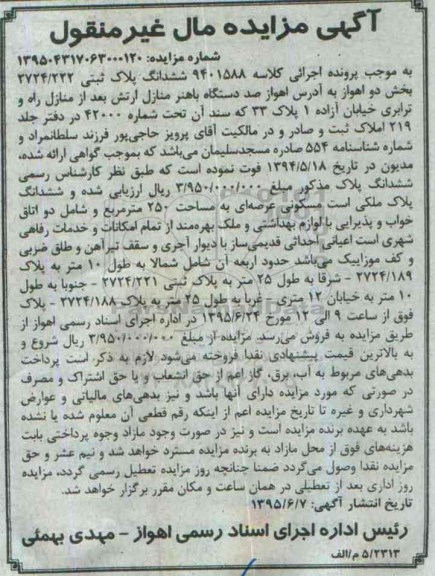 آگهی مزایده مال غیرمنقول
شماره مزایده: ۱۳۹۵۰۴۳۱۷۰۶۳۰۰۰۱۲۰
به موجب پرونده اجرائی کلاسه ۹۴۰۱۵۸۸ ششدانگ پلاک ثبتی ۲۷۲۴/۲۲۲
بخش دو اهواز به آدرس اهواز صد دستگاه باهنر منازل ارتش بعد از منازل راه و
ترابری خیابان آزاده ۱ پلاک ۳۳ که سند آن تحت شماره ۴۲۰۰۰ در دفتر جلد
۲۱۹ املاک ثبت و صادر و در مالکیت آقای پرویز حاجی‌پور فرزند سلطانمراد و
شماره شناسنامه ۵۵۴ صادره مسجدسلیمان می‌باشد که بموجب گواهی ارائه شده،
مدیون در تاریخ ۱۳۹۴/۵/۱۸ فوت نموده است که طبق نظر کارشناس رسمی
ششدانگ پلاک مذکور مبلغ ۳/۹۵۰/۰۰۰/۰۰۰ ریال ارزیابی شده و ششدانگ
پلاک ملکی است مسکونی عرصه‌ای به مساحت ۲۵۰ مترمربع و شامل دو اتاق
خواب و پذیرایی با لوازم بهداشتی و ملک بهره‌مند از تمام امکانات و خدمات رفاهی
شهری است اعیانی احداثی قدیمی‌ساز با دیوار آجری و سقف تیرآهن و طاق ضربی
و کف موزاییک می‌باشد حدود اربعه آن شامل شمالا به طول ۱۰ متر به پلاک
۲۷۲۴/۱۸۹ - شرقا به طول ۲۵ متر به پلاک ثبتی ۲۷۲۴/۲۲۱ - جنوبا به طول
۱۰ متر به خیابان ۱۲ متری - غربا به طول ۲۵ متر به پلاک ۲۷۲۴/۱۸۸ - پلاک
فوق از ساعت ۹ الی ۱۲ مورخ ۱۳۹۵/۶/۲۴ در اداره اجرای اسناد رسمی اهواز از
طریق مزایده به فروش می‌رسد. مزایده از مبلغ ۳/۹۵۰/۰۰۰/۰۰۰ ریال شروع و
به بالاترین قیمت پیشنهادی نقدا فروخته می‌شود لازم به ذکر است پرداخت
بدهی‌های مربوط به آب، برق، گاز اعم از حق انشعاب و یا حق اشتراک و مصرف
در صورتی که مورد مزایده دارای آنها باشد و نیز بدهی‌های مالیاتی و عوارض
شهرداری و غیره تا تاریخ مزایده اعم از اینکه رقم قطعی آن معلوم شده یا نشده
باشد به عهده برنده مزایده است و نیز در صورت وجود مازاد وجوه پرداختی بابت
هزینه‌های فوق از محل مازاد به برنده مزایده مسترد خواهد شد و نیم عشر و حق
مزایده نقدا وصول می‌گردد ضمنا چنانچه روز مزایده تعطیل رسمی گردد، مزایده
روز اداری بعد از تعطیلی در همان ساعت و مکان مقرر برگزار خواهد شد.
تاریخ انتشار آگهی: ۱۳۹۵/۶/۷
رئیس اداره اجرای اسناد رسمی اهواز - مهدی بهمئی
۵/۲۳۱۳ م/الف